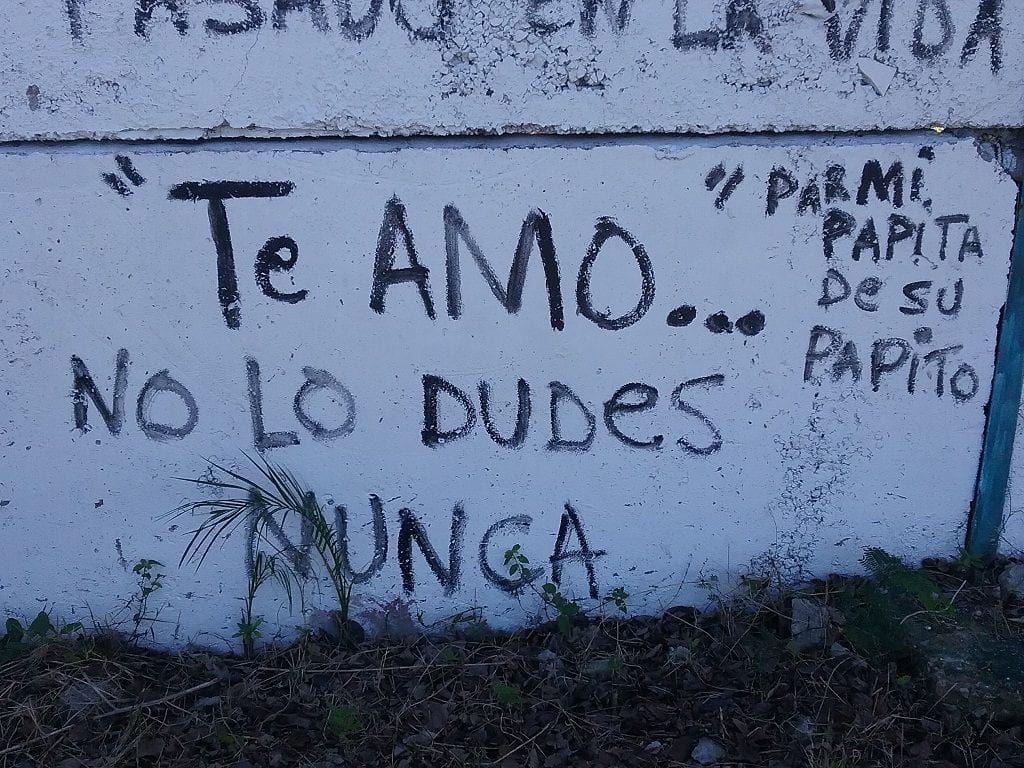 PASADO EN LA VIDA
"Te AMO..."
NO LO DUDES
NUNCA
PARMi.
PAPITA
De SU
PAPiTO